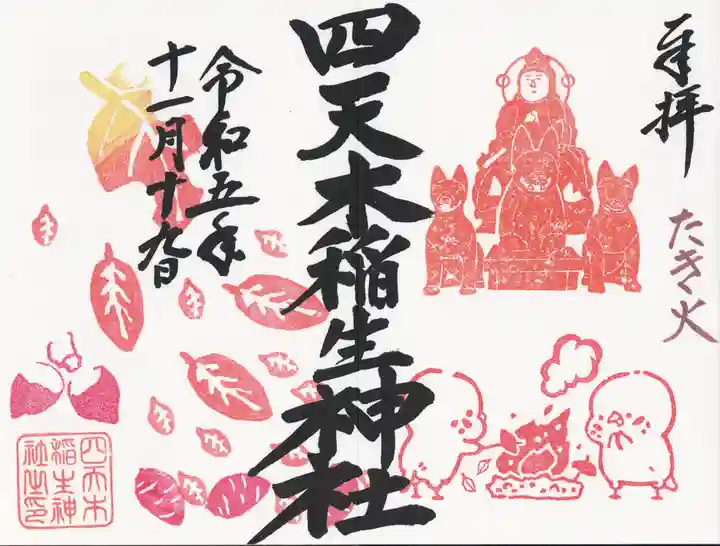 奉拝
たき火
四天木稲生神社
令和五年
十一月十九日
四天木
稲生神
社之印